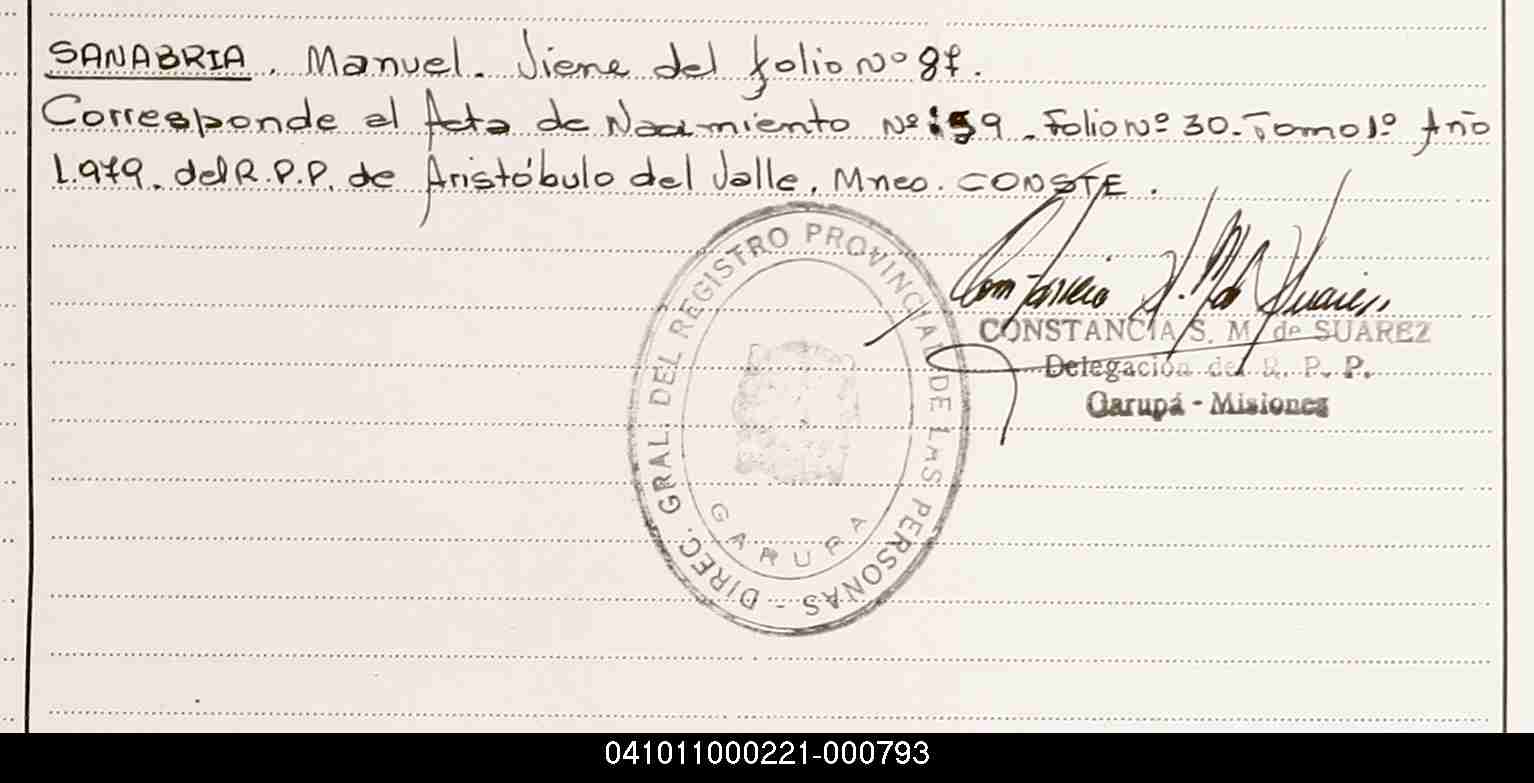 SANABRIA. Manuel. Viene del folio Nº 87.
Corresponde al Acta de Nacimiento Nº 159. Folio Nº 30. Tomo 1º Año
1.979. del R.P.P. de Aristóbulo del Valle, Mnes. CONSTE.
DIREC. GRAL. DEL REGISTRO PROVINCIAL DE LAS PERSONAS -
GARUPA
CONSTANCIA S. M. de SUAREZ
Delegación del R. P. P.
Garupá - Misiones
041011000221-000793